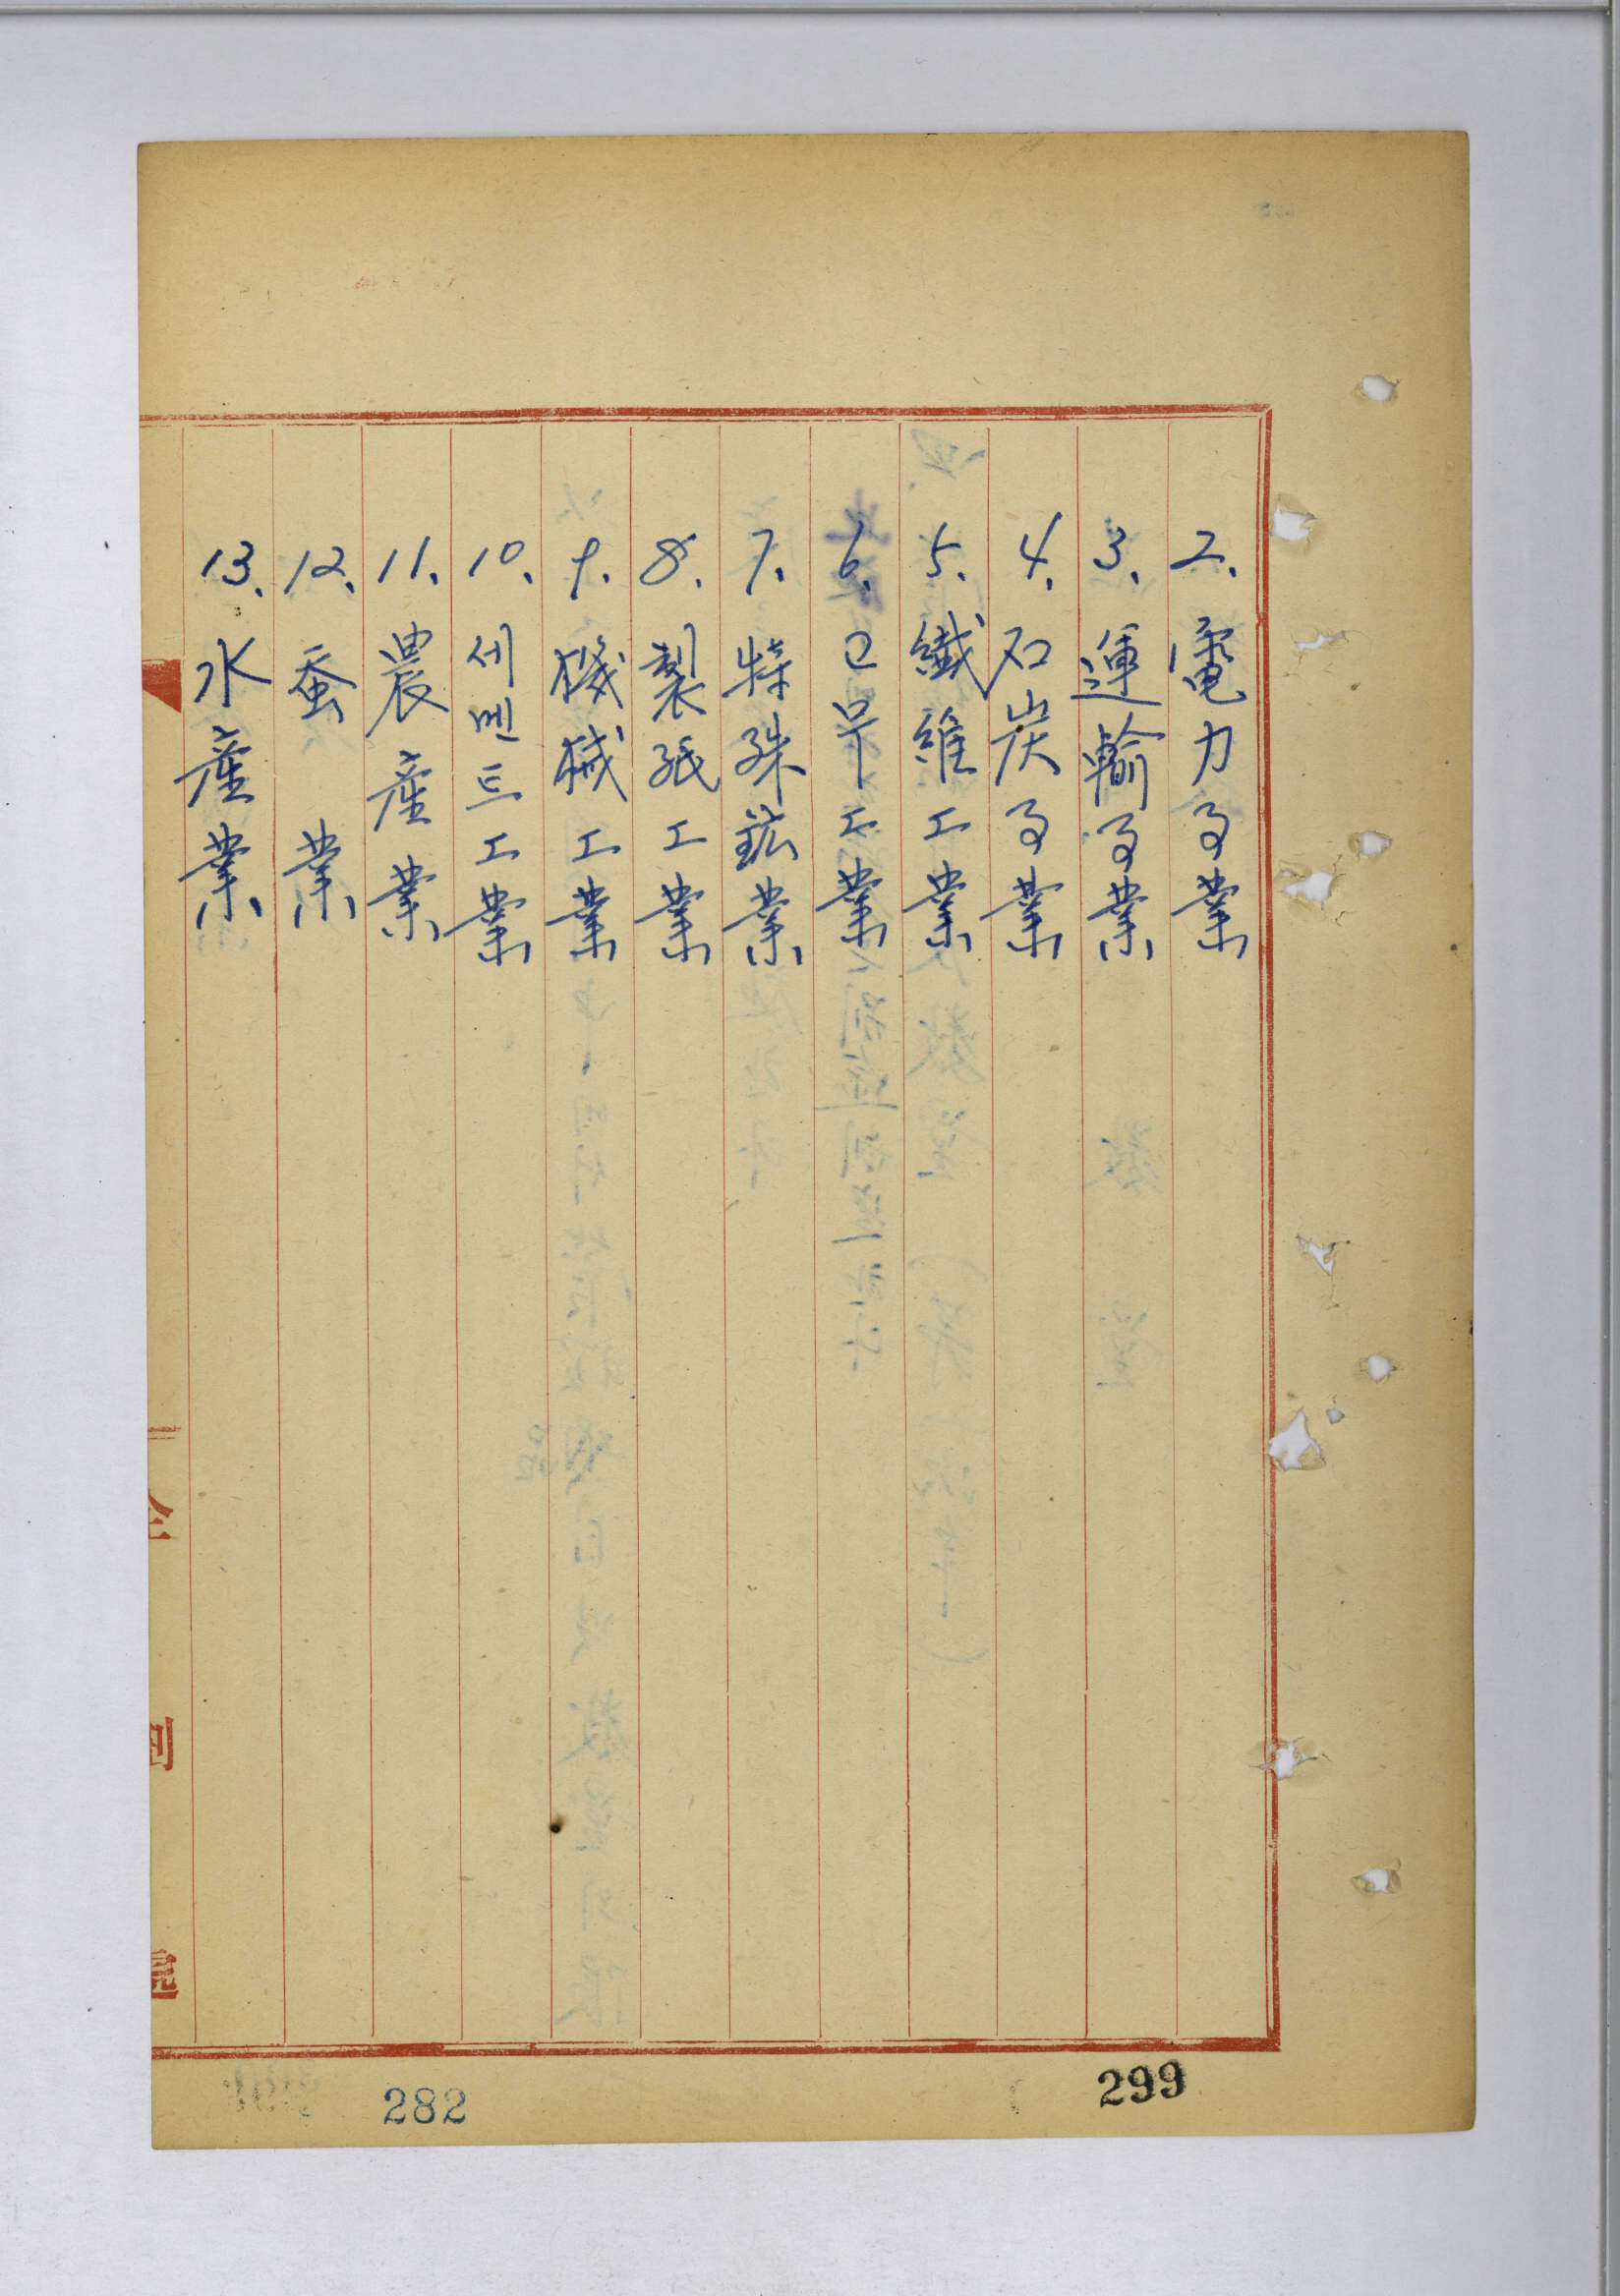 2. 電力事業
3. 運輸事業
4. 石炭事業
5. 纖維工業
6. 고무工業
7. 特殊鉱業
8. 製紙工業
9. 機械工業
10. 세멘트工業
11. 農産業
12. 蚕業
13. 水産業
299
282